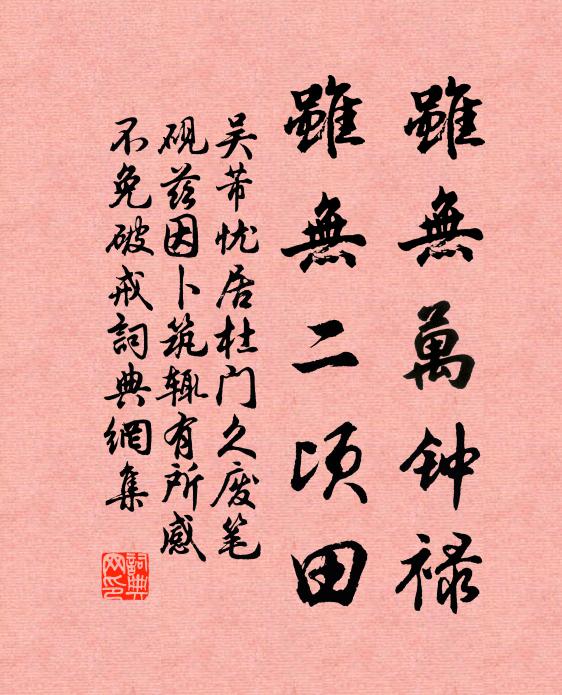 雖無萬钟禄
雖無二顷田
吴芾忧居杜门久废笔
砚兹因卜筑辄有所感
不免破戒詞典網集
詞典网印